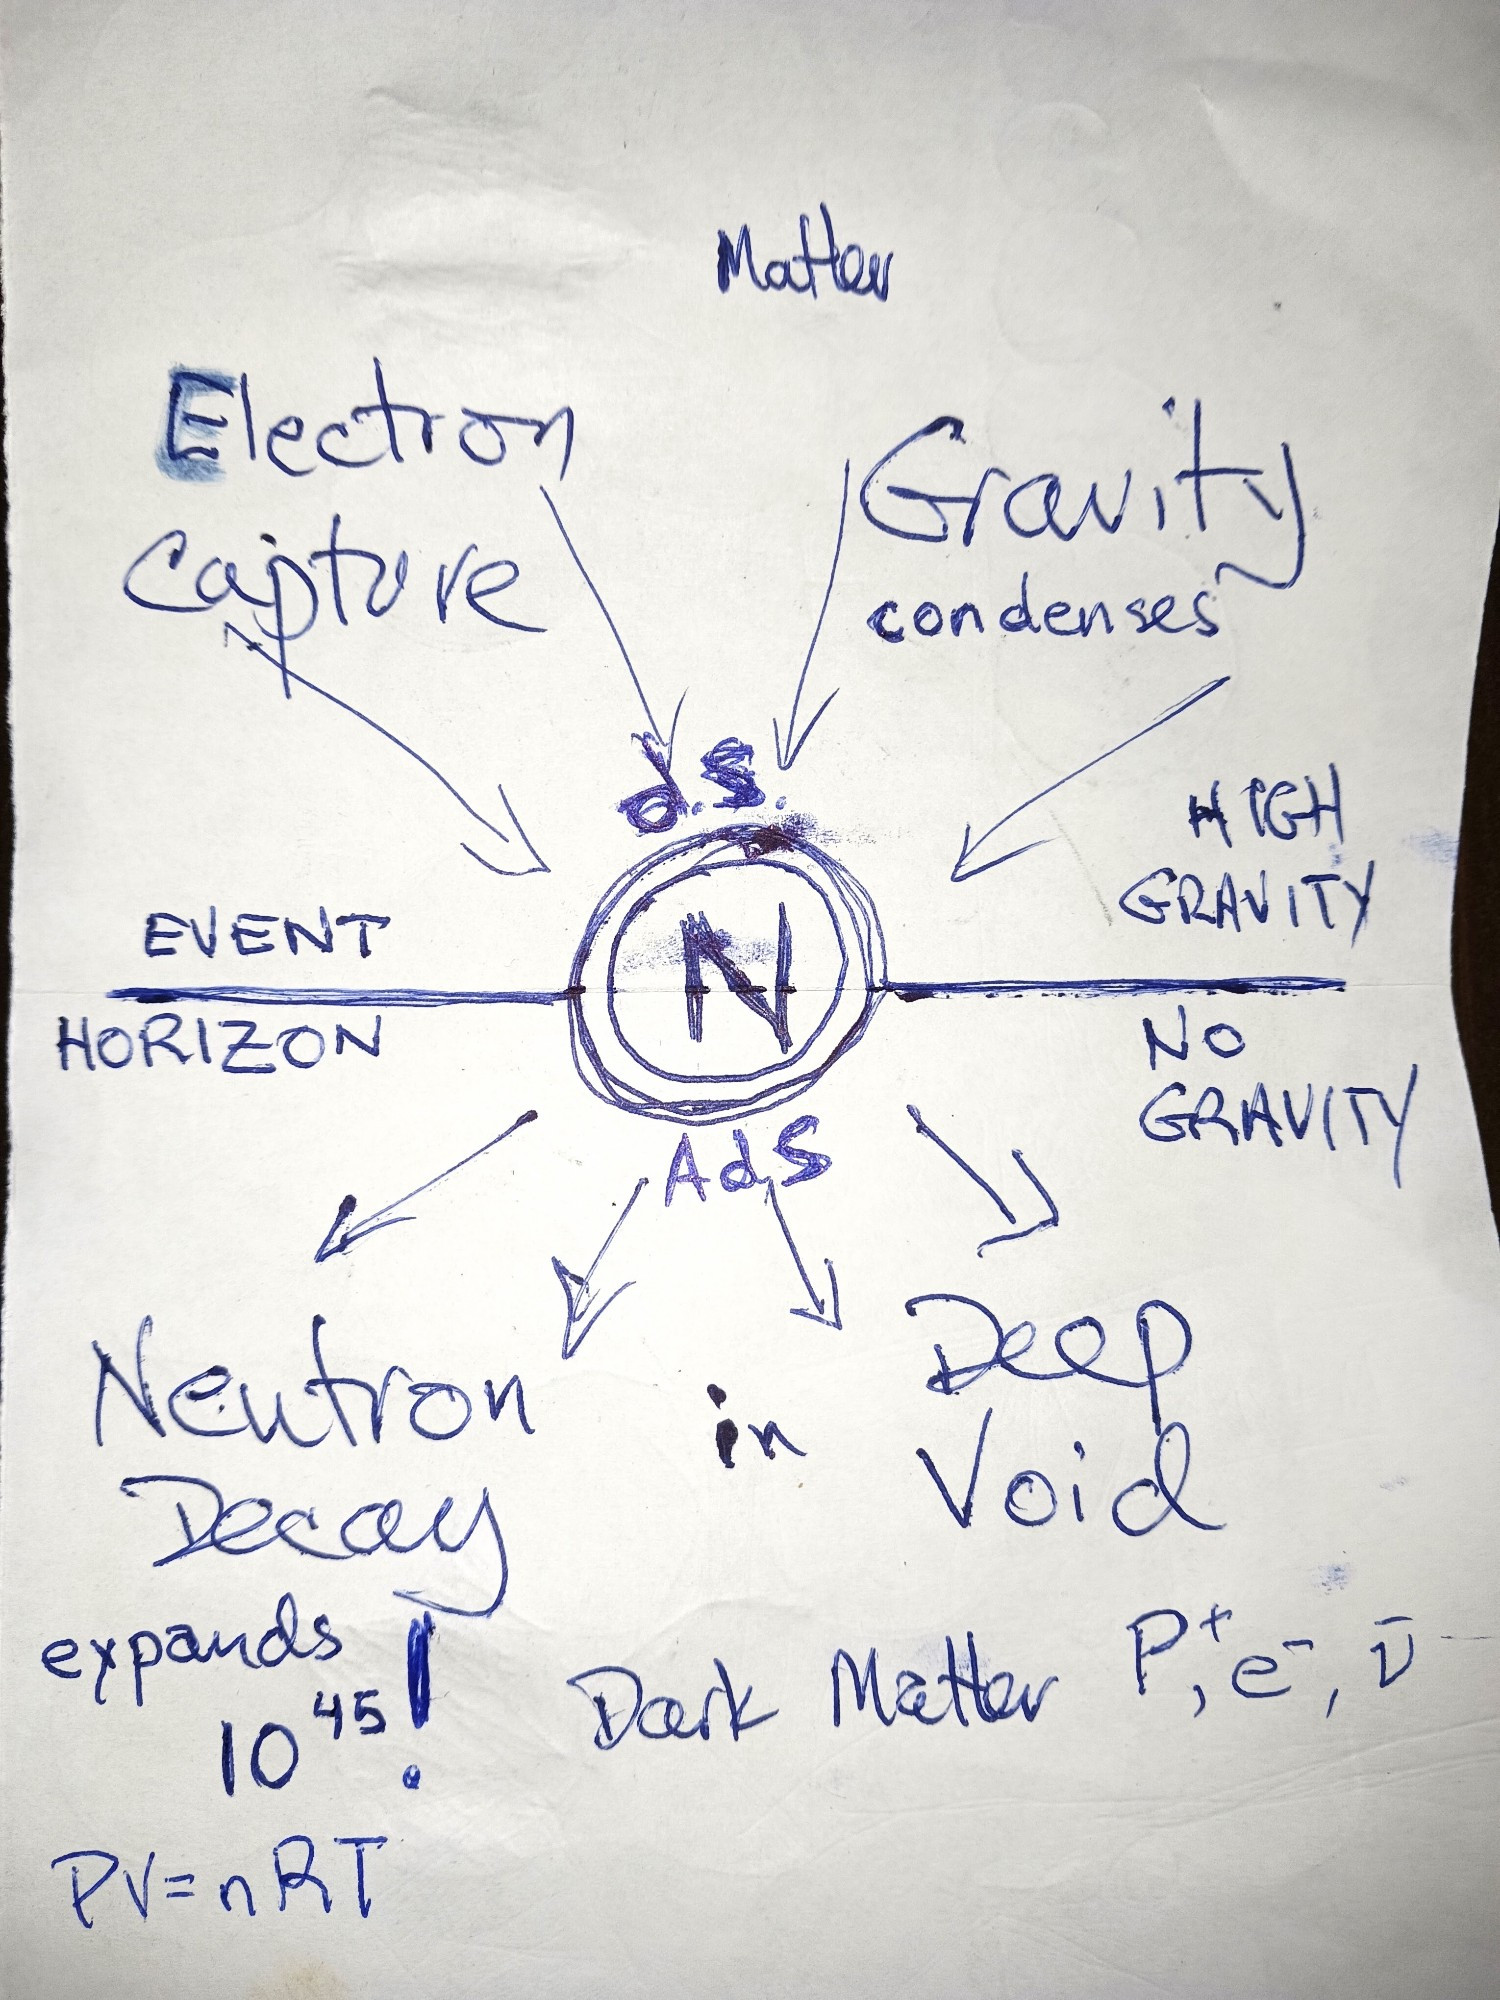 Matter
Electron
Capture
Gravity
condenses
d.S.
HIGH
GRAVITY
EVENT
N
HORIZON
NO
GRAVITY
AdS
Neutron
Decay
in
Deep
Void
expands
10^45!
Dark Matter P⁺, e⁻, ν̄
PV=nRT